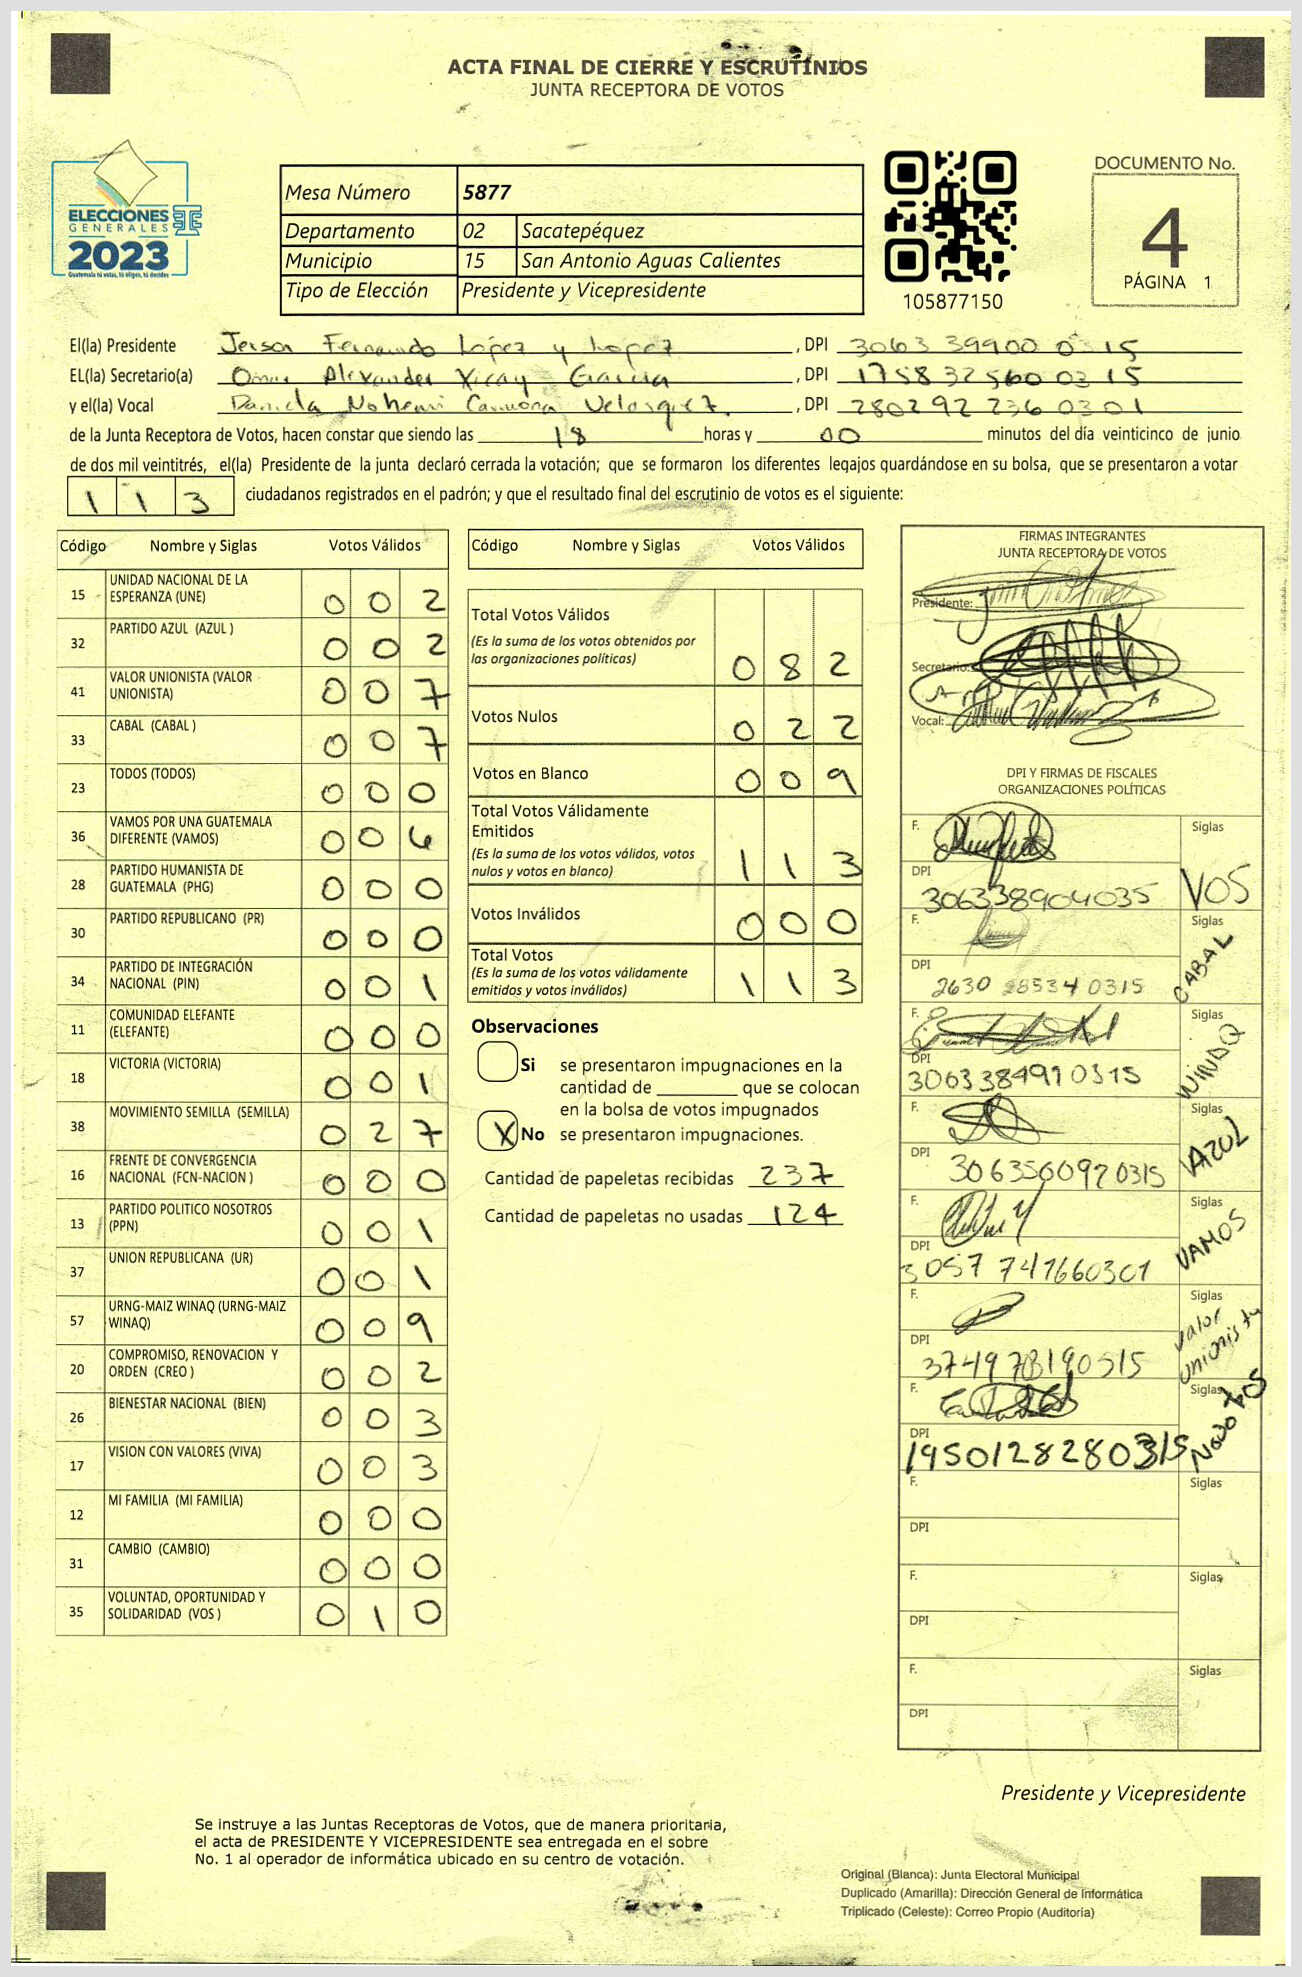 ACTA FINAL DE CIERRE Y ESCRUTINIOS
JUNTA RECEPTORA DE VOTOS
ELECCIONES
GENERALES
2023
Guatemala tú votas, tú eliges, tú decides
Mesa Número 5877
Departamento 02 Sacatepéquez
Municipio 15 San Antonio Aguas Calientes
Tipo de Elección Presidente y Vicepresidente
105877150
DOCUMENTO No.
4
PÁGINA 1
El(la) Presidente Jerson Fernando López y López, DPI 3063 39900 0315
EL(la) Secretario(a) Omar Alexander Xicay Garcia, DPI 1758 32560 0315
y el(la) Vocal Daniela Nohemi Carmona Velasquez, DPI 2802922360301
de la Junta Receptora de Votos, hacen constar que siendo las 18 horas y 00 minutos del día veinticinco de junio
de dos mil veintitrés, el(la) Presidente de la junta declaró cerrada la votación; que se formaron los diferentes legajos guardándose en su bolsa, que se presentaron a votar
113 ciudadanos registrados en el padrón; y que el resultado final del escrutinio de votos es el siguiente:
Código Nombre y Siglas Votos Válidos
15 UNIDAD NACIONAL DE LA ESPERANZA (UNE) 002
32 PARTIDO AZUL (AZUL ) 002
41 VALOR UNIONISTA (VALOR UNIONISTA) 007
33 CABAL (CABAL ) 007
23 TODOS (TODOS) 000
36 VAMOS POR UNA GUATEMALA DIFERENTE (VAMOS) 006
28 PARTIDO HUMANISTA DE GUATEMALA (PHG) 000
30 PARTIDO REPUBLICANO (PR) 000
34 PARTIDO DE INTEGRACIÓN NACIONAL (PIN) 001
11 COMUNIDAD ELEFANTE (ELEFANTE) 000
18 VICTORIA (VICTORIA) 001
38 MOVIMIENTO SEMILLA (SEMILLA) 027
16 FRENTE DE CONVERGENCIA NACIONAL (FCN-NACION ) 000
13 PARTIDO POLITICO NOSOTROS (PPN) 001
37 UNION REPUBLICANA (UR) 001
57 URNG-MAIZ WINAQ (URNG-MAIZ WINAQ) 009
20 COMPROMISO, RENOVACION Y ORDEN (CREO ) 002
26 BIENESTAR NACIONAL (BIEN) 003
17 VISION CON VALORES (VIVA) 003
12 MI FAMILIA (MI FAMILIA) 000
31 CAMBIO (CAMBIO) 000
35 VOLUNTAD, OPORTUNIDAD Y SOLIDARIDAD (VOS ) 010
Código Nombre y Siglas Votos Válidos
Total Votos Válidos
(Es la suma de los votos obtenidos por
las organizaciones políticas) 082
Votos Nulos 022
Votos en Blanco 009
Total Votos Válidamente
Emitidos
(Es la suma de los votos válidos, votos
nulos y votos en blanco) 113
Votos Inválidos 000
Total Votos
(Es la suma de los votos válidamente
emitidos y votos inválidos) 113
Observaciones
Si se presentaron impugnaciones en la
cantidad de ________ que se colocan
en la bolsa de votos impugnados
X No se presentaron impugnaciones.
Cantidad de papeletas recibidas 237
Cantidad de papeletas no usadas 124
FIRMAS INTEGRANTES
JUNTA RECEPTORA DE VOTOS
Presidente:
Secretario:
Vocal:
DPI Y FIRMAS DE FISCALES
ORGANIZACIONES POLÍTICAS
F. Siglas
DPI 306338904035 VOS
F. Siglas
DPI 2630 285340315 CABAL
F. Siglas
DPI 3063384910315 WINAQ
F. Siglas
DPI 3063500920315 AZUL
F. Siglas
DPI 3057 747660301 VAMOS
F. Siglas
DPI 3749 78190315 valor unionista
F. Siglas
DPI 1950128280315 Nosotros
F. Siglas
DPI
F. Siglas
DPI
F. Siglas
DPI
Presidente y Vicepresidente
Se instruye a las Juntas Receptoras de Votos, que de manera prioritaria,
el acta de PRESIDENTE Y VICEPRESIDENTE sea entregada en el sobre
No. 1 al operador de informática ubicado en su centro de votación.
Original (Blanca): Junta Electoral Municipal
Duplicado (Amarilla): Dirección General de Informática
Triplicado (Celeste): Correo Propio (Auditoría)